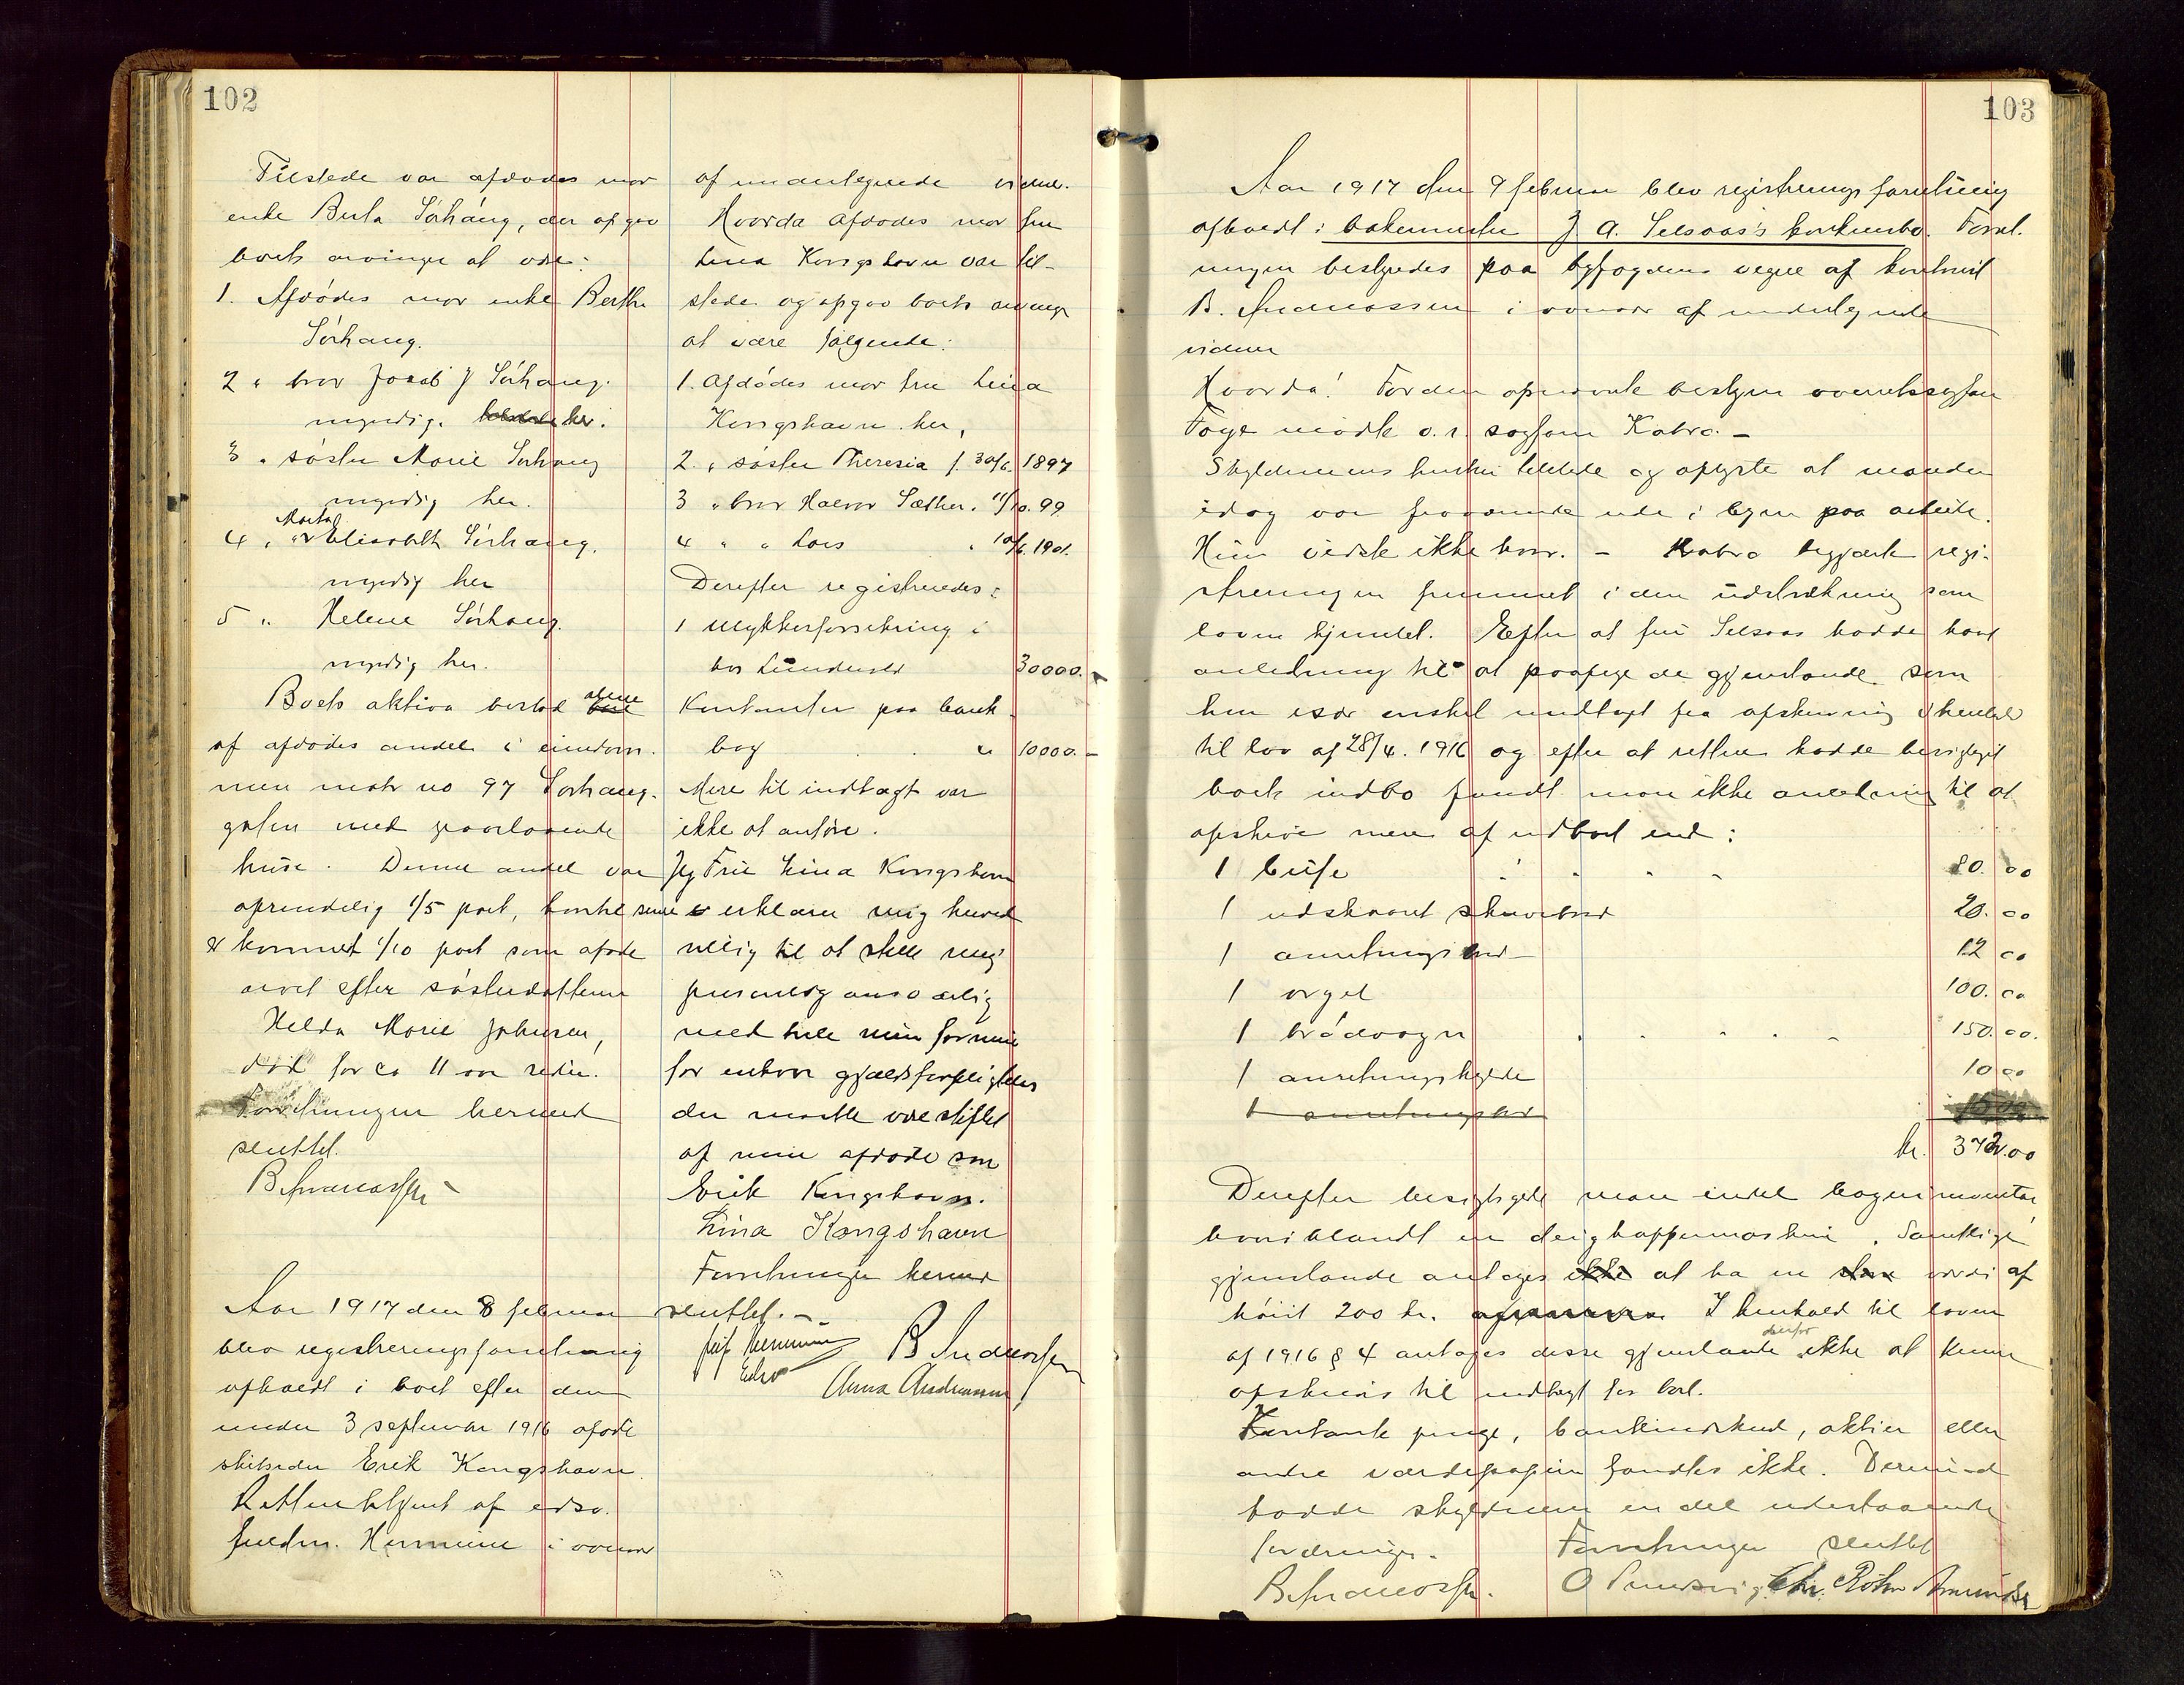 102
Tilstede var afdødes mor
enke Berta Sörhaug, der opgav
boets arvinger at være:
1. Afdödes mor enke Berthe
Sörhaug.
2 " bror Jacob J Sörhaug.
myndig. her.
3 " söster Marie Sörhaug
myndig her.
4 " " Elisabeth Sörhaug.
myndig her
5 " Helene Sörhaug.
myndig her.
Boets aktiva bestod alene
af afdödes andel i eiendom-
men matr no 97 Sörhaug-
gaten med paastaaende
huse. Denne andel var
oprindelig 1/5 part, hvortil senere
er kommet 1/10 part som afdöde
arvet efter sösterdatteren
Helda Marie Johnsen,
död for ca 11 aar siden.
Forretningen hermed
sluttet.
B Andreassen
Aar 1917 den 8 februar
blev registreringsforretning
afholdt i boet efter den
under 3 september 1916 afdöde
skibsreder Erik Kongshavn.
Retten betjent af edsv.
fuldm. Hermine i overvær
af undertegnede vidner.
Hvorda afdødes mor fru
Lina Kongshavn var til-
stede og opgav boets arvinger
at være følgende:
1. Afdødes mor fru Lina
Kongshavn her,
2. " søster Theresia f. 30/6. 1897
3 " bror Halvor Sæther. " 11/10. 99
4 " " Lars " 10/6. 1901.
Derefter registreredes:
1 Ulykkesforsikring i
30000.
Kontanter paa bank-
bog " 10000.-
Mere til indtægt var
ikke at anföre.
Jeg Fru Lina Kongshavn
erklærer mig herved
villig til at stille mig
personlig ansvarlig
med hele min formue
for enhver gjældsforpligtelse
der maatte være stiftet
af min afdöde sön
Erik Kongshavn.
Lina Kongshavn
Forretningen hermed
sluttet.-
B Andreassen
Anna Andreassen
103
Aar 1917 den 9 februar blev registreringsforretning
afholdt i bakermester J A. Selsaas's konkursbo. Forret-
ningen bestyredes paa byfogdens vegne af kontorist
B. Andreassen i overvær af undertegnede
vidner
Hvorda! For den opnævnte bestyrer overretssagfører
Foye mødte o.r. sagfører Kabro.-
Skyldnerens hustru tilstede og oplyste at manden
idag var fraværende ude i byen paa arbeide.
Hun vidste ikke hvor. - Kabro begjærte regi-
streringen fremmet i den udstrækning som
loven hjemlet. Efter at fru Selsaas hadde havt
anledning til at paapege de gjenstande som
hun især ønsket undtaget fra opskrivning i henhold
til lov af 28/4. 1916 og efter at retten hadde besigtiget
boets indbo fandt man ikke anledning til at
opskrive mere af indboet end:
1 buffe 80. 00
1 udskaaret skrivebord 20. 00
1 anretningsbord 12 00
1 orgel 100. 00
1 brödvogn 150. 00.
1 anretningshylde 10 00
kr. 372.00
Derefter besigtigede man endel bagerinventar
hvoriblandt en deighappermaskin. Samtlige
gjenstande antages at ha en værdi af
höist 200 kr. I henhold til loven
af 1916 § 4 antages disse gjenstande derfor ikke at kunne
opskrives til indtægt for boet.
Kontante penge, bankindskud, aktier eller
andre værdipapirer fandtes ikke. Derimod
hadde skyldneren en del udestaaende
fordringer. Forretningen sluttet
B Andreassen.